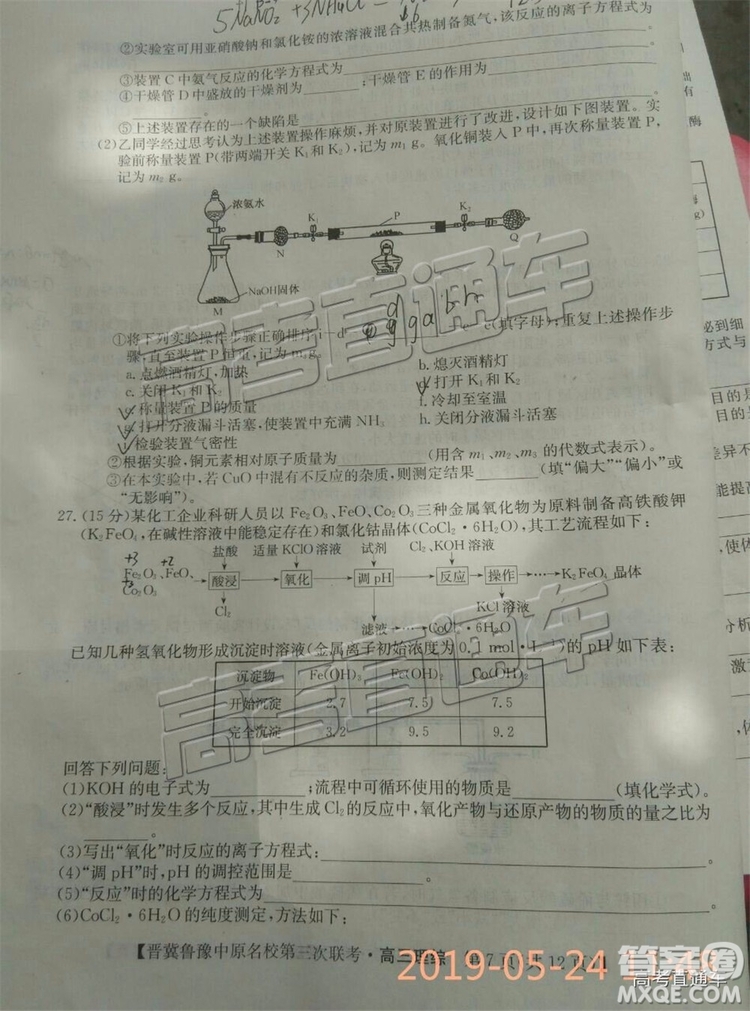 5NaNO₂+3NH₄Cl=
②实验室可用亚硝酸钠和氯化铵的浓溶液混合共热制备氮气,该反应的离子方程式为
③装置C中氨气反应的化学方程式为
④干燥管D中盛放的干燥剂为 ;干燥管E的作用为
。
⑤上述装置存在的一个缺陷是
(2)乙同学经过思考认为上述装置操作麻烦,并对原装置进行了改进,设计如下图装置。实
验前称量装置P(带两端开关K₁和K₂),记为m₁ g。氧化铜装入P中,再次称量装置P,
记为m₂ g。
浓氨水
K₁
P
K₂
N
Q
NaOH固体
M
①将下列实验操作步骤正确排序: d c(填字母);重复上述操作步
骤,直至装置P恒重,记为m₃g。
a.点燃酒精灯,加热
b.熄灭酒精灯
c.关闭K₁和K₂
打开K₁和K₂
称量装置P的质量
f.冷却至室温
打开分液漏斗活塞,使装置中充满NH₃
h.关闭分液漏斗活塞
检验装置气密性
②根据实验,铜元素相对原子质量为 (用含m₁、m₂、m₃的代数式表示)。
③在本实验中,若CuO中混有不反应的杂质,则测定结果 (填“偏大”“偏小”或
“无影响”)。
27.(15分)某化工企业科研人员以Fe₂O₃、FeO、Co₂O₃三种金属氧化物为原料制备高铁酸钾
(K₂FeO₄,在碱性溶液中能稳定存在)和氯化钴晶体(CoCl₂·6H₂O),其工艺流程如下:
盐酸 适量KClO溶液 试剂 Cl₂、KOH溶液
+3 +2
Fe₂O₃、FeO、
Co₂O₃
酸浸 氧化 调pH 反应 操作 ……K₂FeO₄晶体
Cl₂ KCl溶液
滤液……CoCl₂·6H₂O
已知几种氢氧化物形成沉淀时溶液(金属离子初始浓度为0.1 mol·L⁻¹)的pH如下表:
沉淀物 Fe(OH)₃ Fe(OH)₂ Co(OH)₂
开始沉淀 2.7 7.5 7.5
完全沉淀 3.2 9.5 9.2
回答下列问题:
(1)KOH的电子式为 ;流程中可循环使用的物质是 (填化学式)。
(2)“酸浸”时发生多个反应,其中生成Cl₂的反应中,氧化产物与还原产物的物质的量之比为
。
(3)写出“氧化”时反应的离子方程式: 。
(4)“调pH”时,pH的调控范围是 。
(5)“反应”时的化学方程式为 。
(6)CoCl₂·6H₂O的纯度测定,方法如下:
【晋冀鲁豫中原名校第三次联考·高三理综 第7页(共12页)】
2019-05-24
高考直通车
高考直通车
答案圈
MXQE.COM
高考直通车